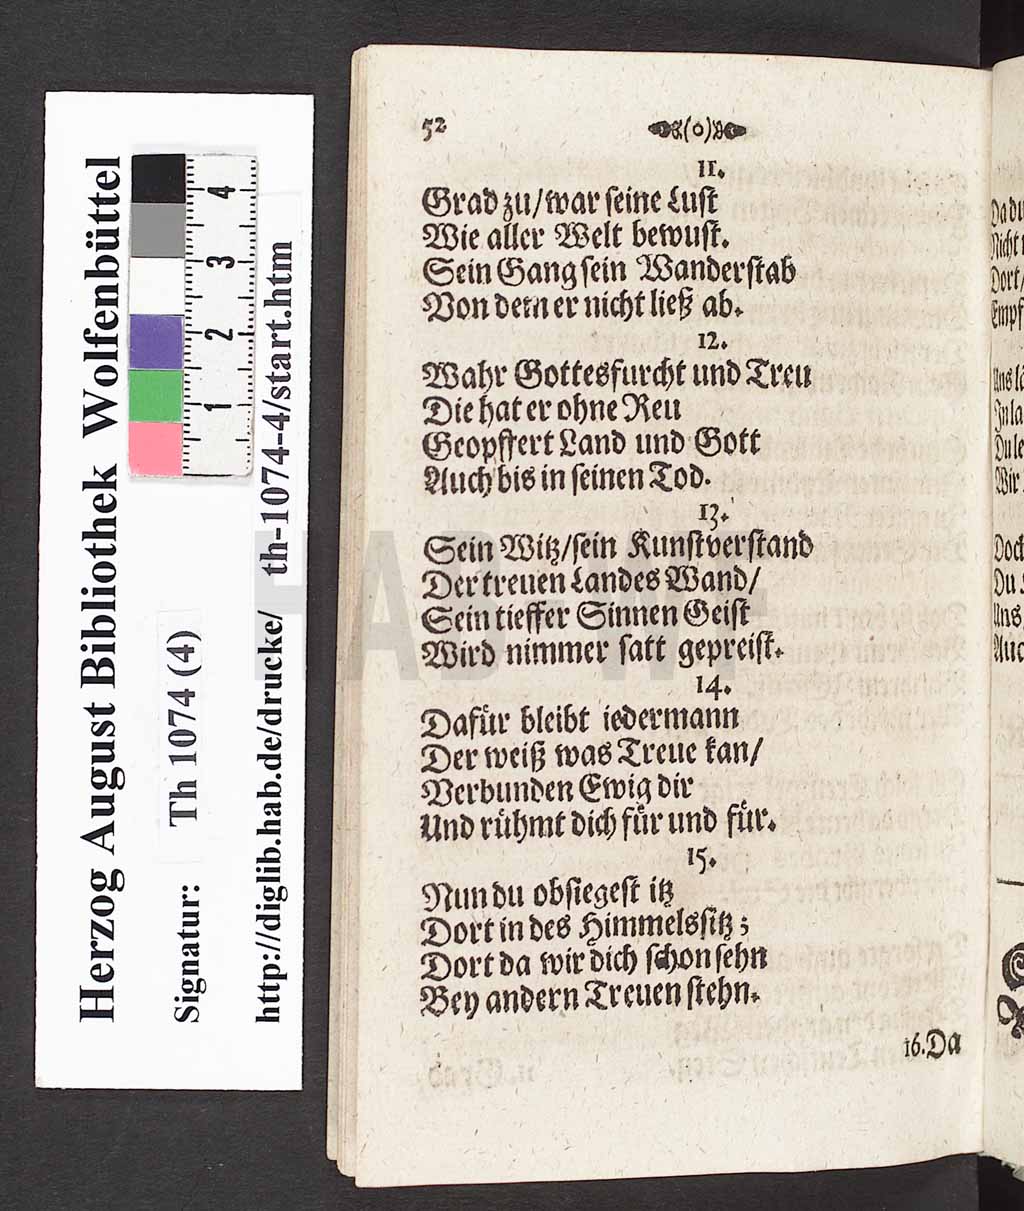 Herzog August Bibliothek Wolfenbüttel
Signatur: Th 1074 (4)
http://diglib.hab.de/drucke/ th-1074-4/start.htm
1 2 3 4
52 (o)
11.
Grad zu/war seine Lust
Wie aller Welt bewust.
Sein Gang sein Wanderstab
Von dem er nicht ließ ab.
12.
Wahr Gottesfurcht und Treu
Die hat er ohne Reu
Geopffert Land und Gott
Auch bis in seinen Tod.
13.
Sein Witz/sein Kunstverstand
Der treuen Landes Wand/
Sein tieffer Sinnen Geist
Wird nimmer satt gepreist.
14.
Dafür bleibt iedermann
Der weiß was Treue kan/
Verbunden Ewig dir
Und rühmt dich für und für.
15.
Nun du obsiegest itz
Dort in des Himmelssitz;
Dort da wir dich schon sehn
Bey andern Treuen stehn.
16.Da
HAB - W